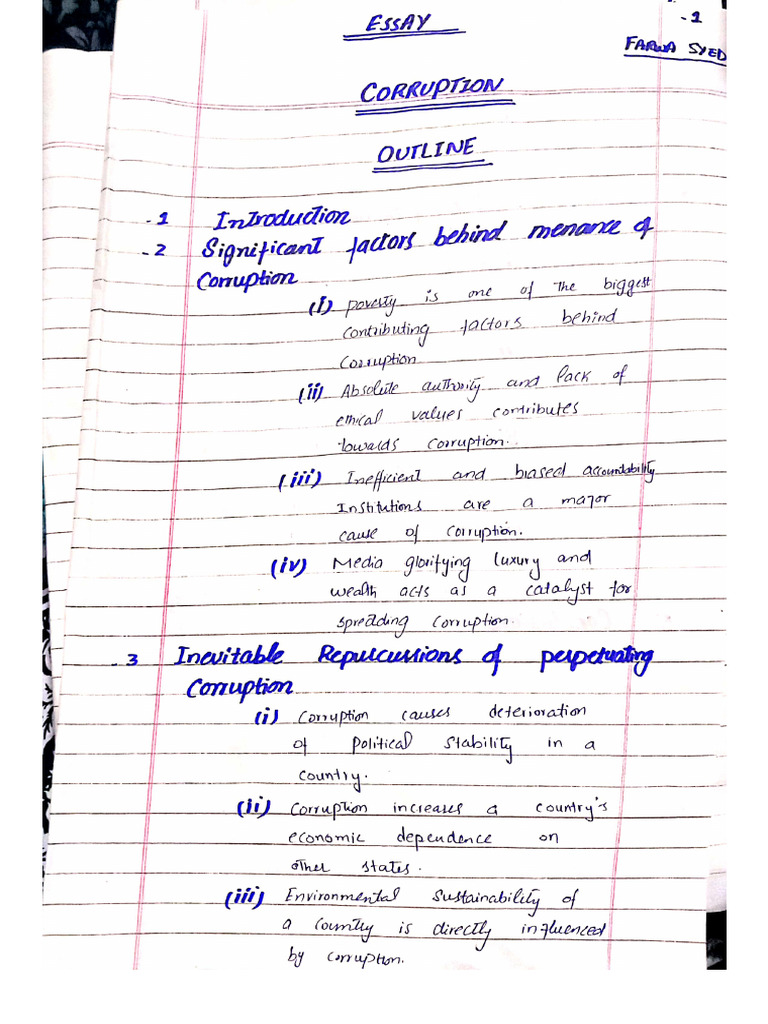 ESSAY
-1
FARWA SYED
CORRUPTION
OUTLINE
-1 Introduction
-2 Significant factors behind menance of
Corruption
(i) poverty is one of the biggest
contributing factors behind
corruption
(ii) Absolute authority and lack of
ethical values contributes
towards corruption.
(iii) Inefficient and biased accountability
Institutions are a major
cause of corruption.
(iv) Media glorifying luxury and
wealth acts as a catalyst for
spreading corruption.
-3 Inevitable Repurcussions of perpetuating
Corruption
(i) Corruption causes deterioration
of political stability in a
country.
(ii) Corruption increases a country's
economic dependence on
other states.
(iii) Environmental sustainability of
a country is directly influenced
by corruption.